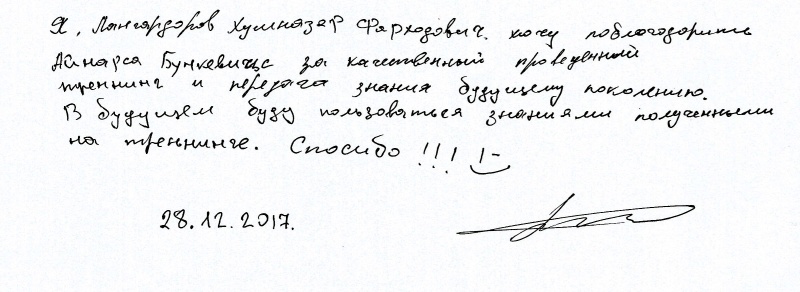 Я, Лангардоров Хумназар Фарходович. хочу поблагодарить
Айнарса Бункевичса за качественный проведенный
треннинг и передача знания будущему поколению.
В будущем буду пользоваться знаниями полученными
на треньнинге. Спосибо !!! 1-)
28.12.2017.